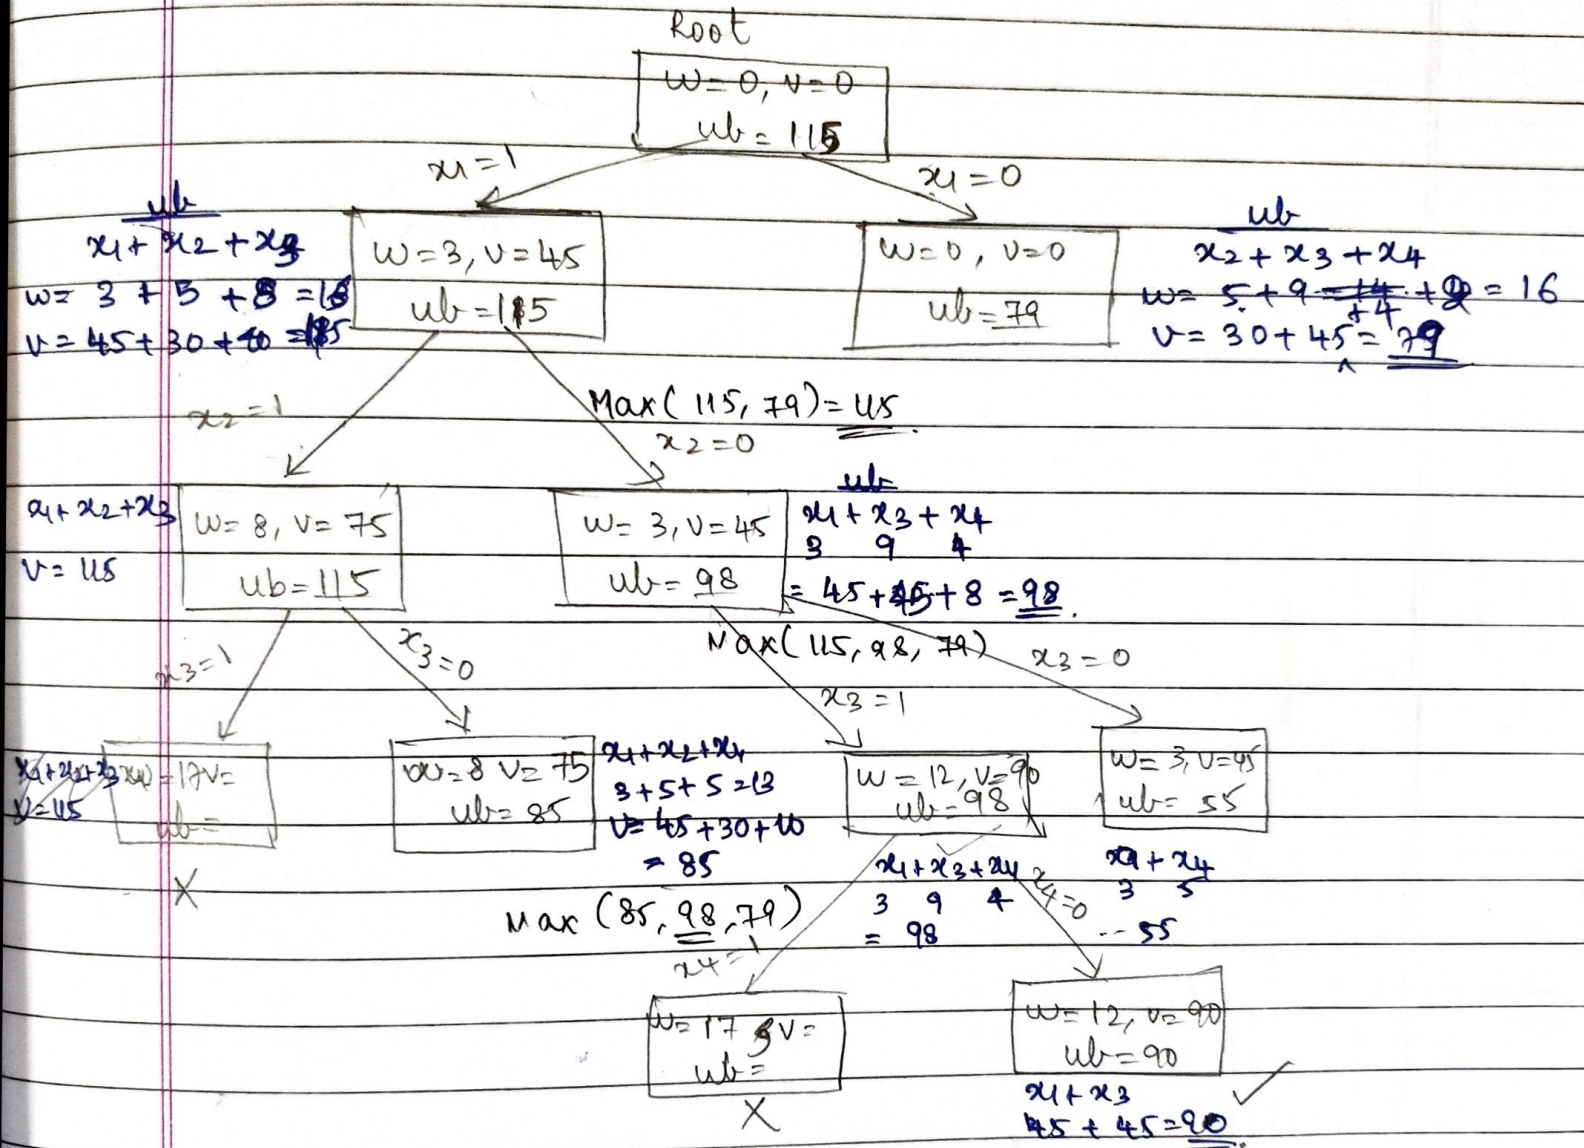 Root
w=0, v=0
ub=115
x1=1
x1=0
ub
x1+x2+x3
w= 3+5+8=16
v=45+30+40=115
w=3, v=45
ub=115
w=0, v=0
ub=79
ub
x2+x3+x4
w= 5+9 +4 +2 = 16
v= 30+45= 79
x2=1
Max( 115, 79)=115
x2=0
x1+x2+x3
v= 115
w= 8, v= 75
ub=115
w= 3, v=45
ub= 98
ub
x1+x3+x4
3 9 4
= 45+45+8 =98
Max( 115, 98, 79)
x3=1
x3=0
x3=1
x3=0
x1+x2+x3
v=115
w=17 v=
ub=
X
w=8 v= 75
ub= 85
x1+x2+x4
3+5+5=13
v= 45+30+10
= 85
w= 12, v=90
ub=98
w= 3, v=45
ub= 55
x1+x3+x4
3 9 4
= 98
x1+x4
3 5
55
Max (85, 98, 79)
x4=1
x4=0
w= 17 v=
ub=
X
w=12, v=90
ub=90
x1+x3
45 + 45=90